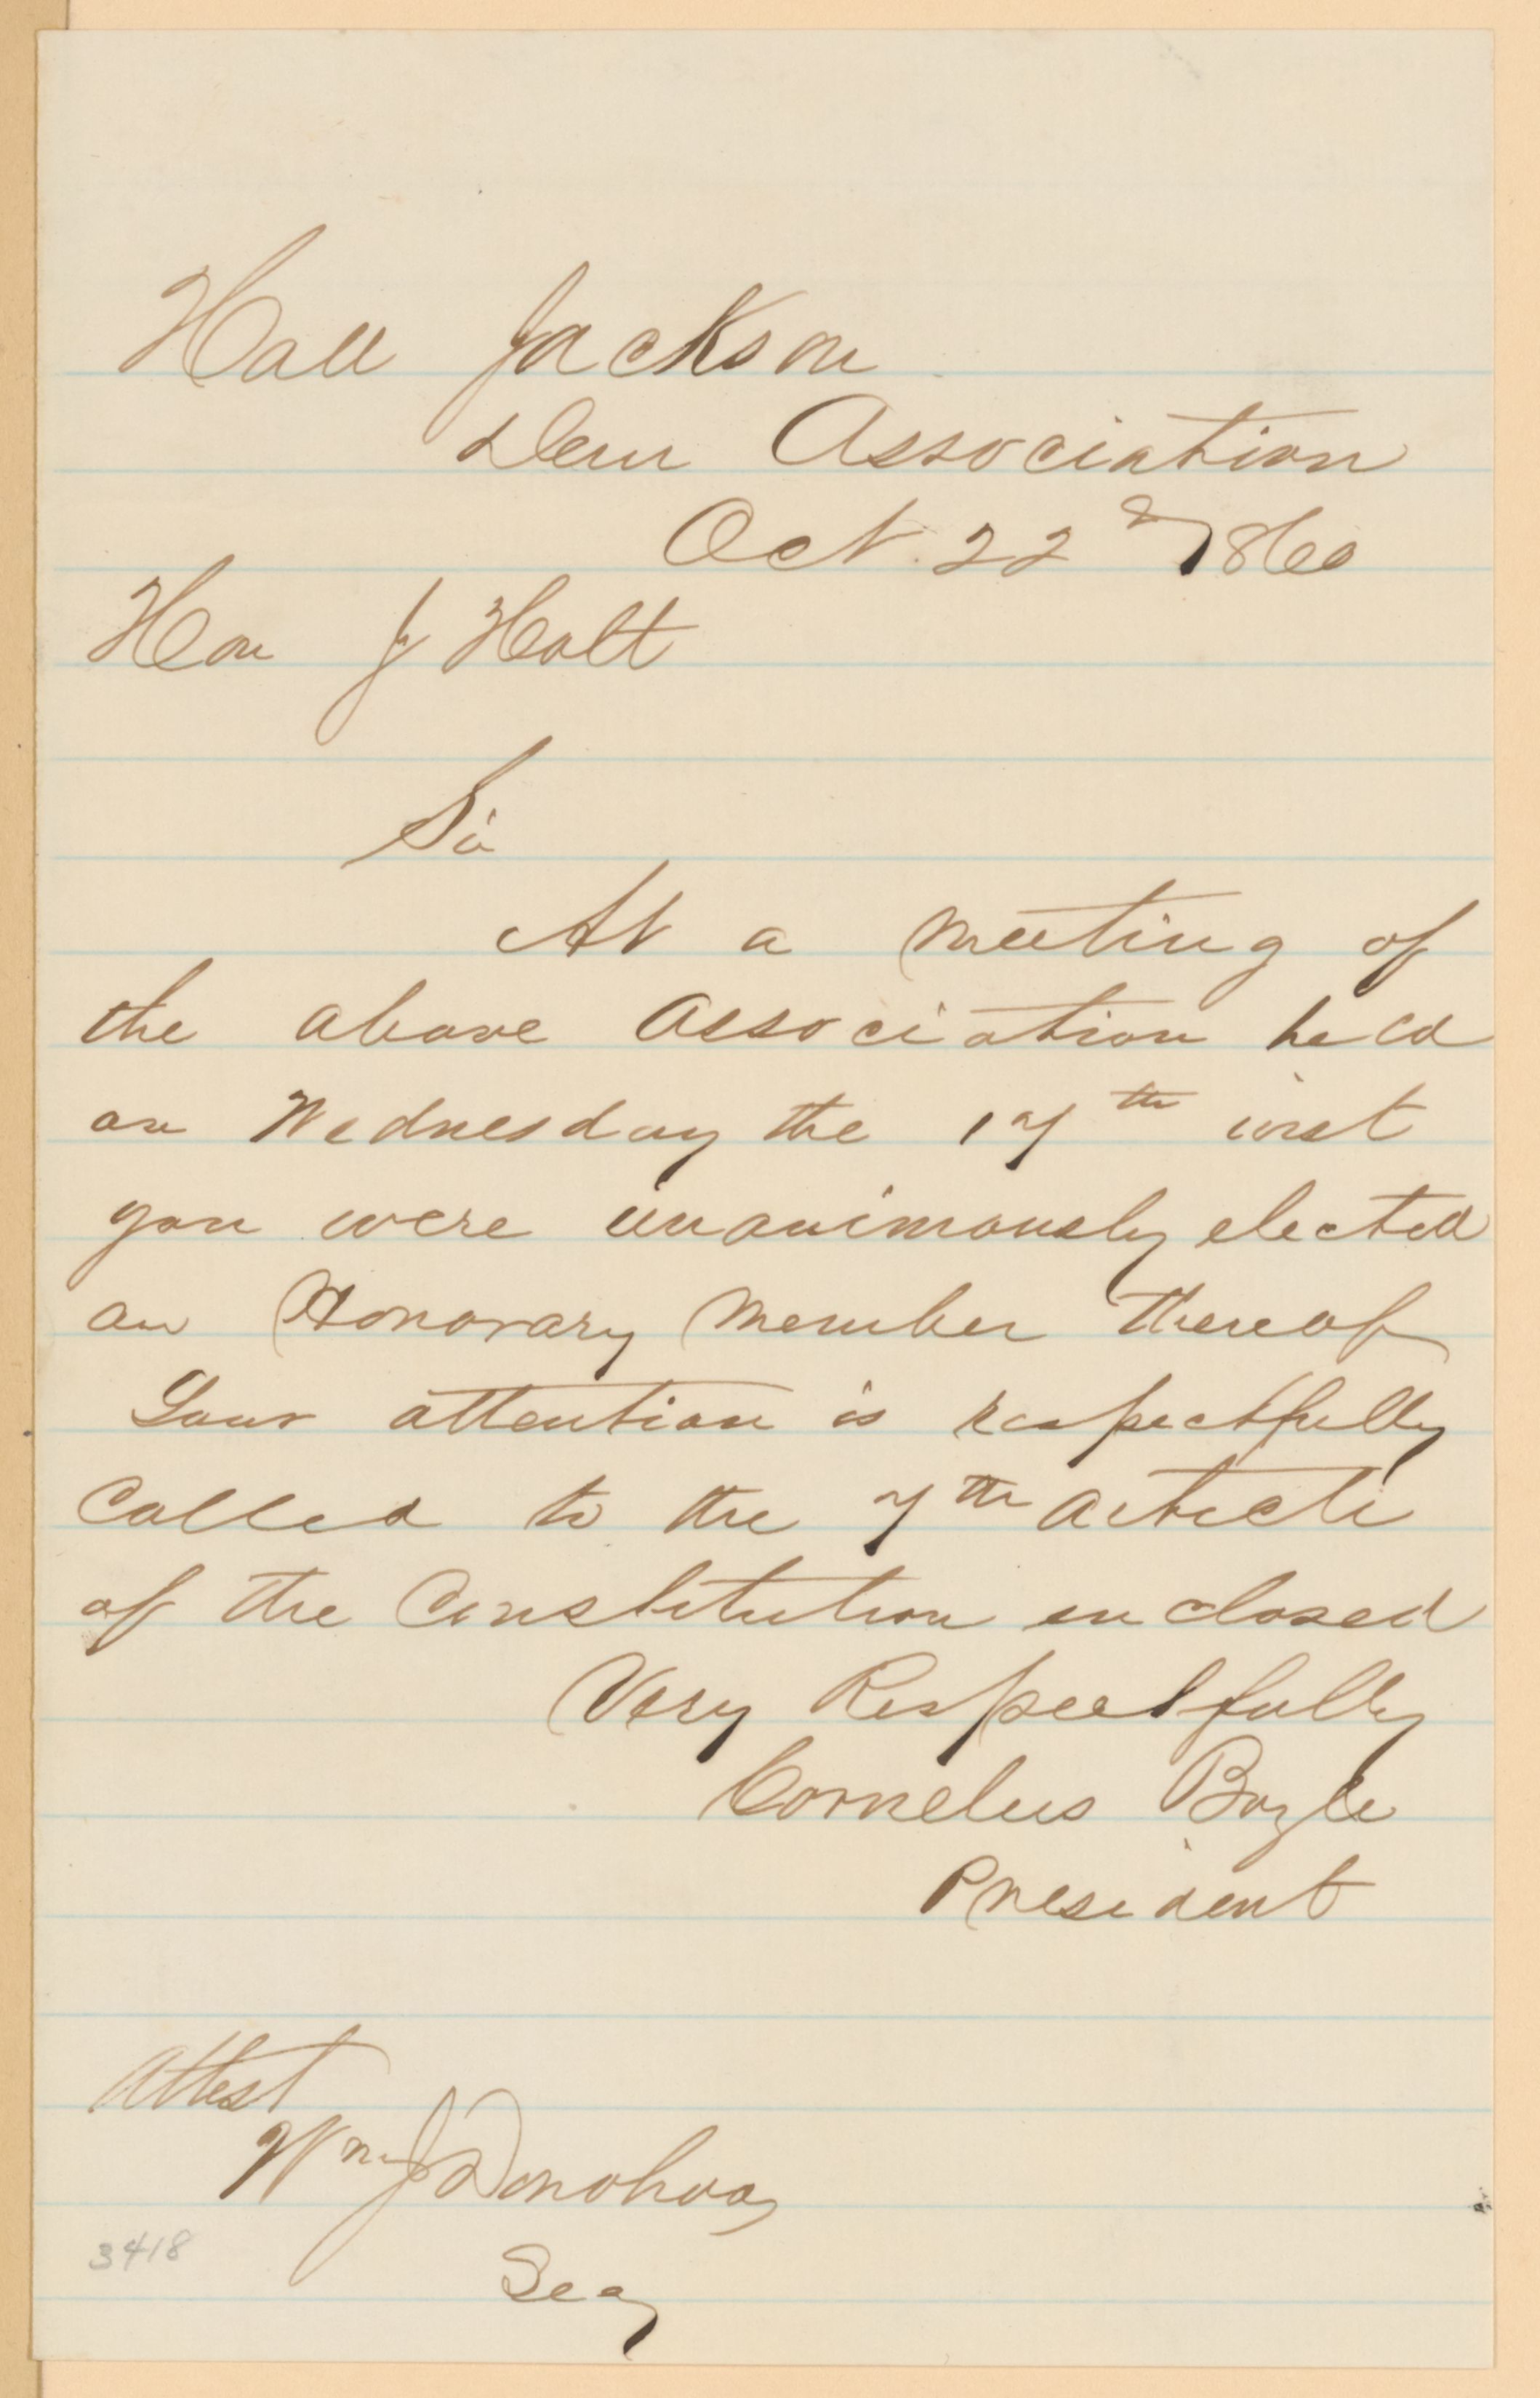 Hall Jackson
Dem Association
Oct. 22nd 1860
Hon J Holt
Sir
At a meeting of
the above association held
on Wednesday the 17th inst
you were unanimously elected
an Honorary member thereof
Your attention is respectfully
Called to the 7th article
of the Constitution enclosed
Very Respectfully
Cornelius Boyle
President
Attest
Wm J Donohoo
Secy
3418